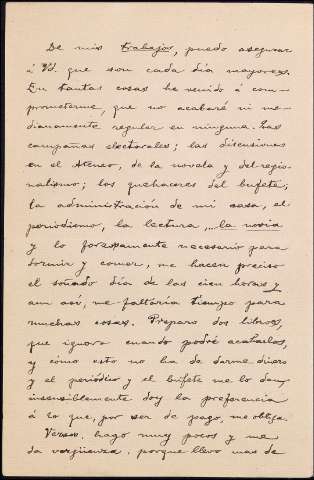 De mis trabajos, puedo asegurar
á Vd que son cada día mayores.
En tantas cosas he venido á com-
prometerme, que no acabaré ni me-
dianamente regular en ninguna. Las
campañas electorales; las discusiones
en el Ateneo, de la novela y del regio-
nalismo; los quehaceres del bufete;
la administración de mi casa, el
periodismo, la lectura, la novia
y lo forosamente necesario para
dormir y comer, me hacen preciso
el soñado día de las cien horas y
aun así, me faltaría tiempo para
muchas cosas. Preparo dos libros,
que ignoro cuando podré acabarlos,
y cómo esto no ha de darme dinero
y el periódico y el bufete me lo dan,
insensiblemente doy la preferencia
á lo que, por ser de pago, me obliga.
Versos, hago muy pocos y me
da vergüenza, porque llevo mas de